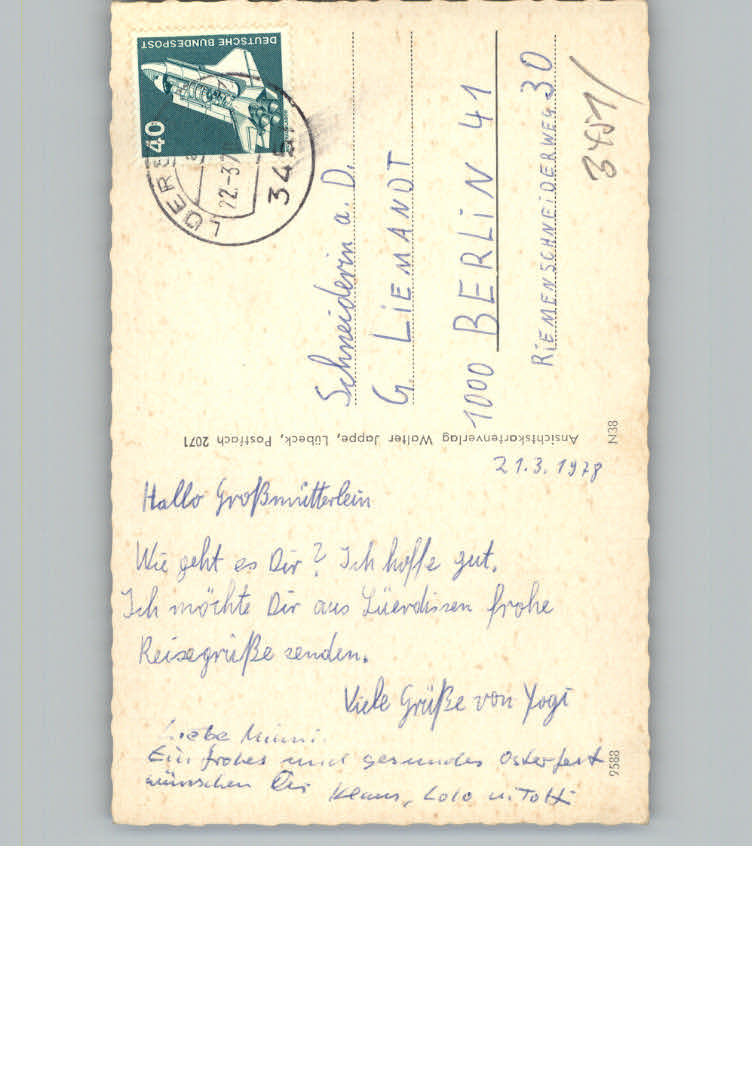 DEUTSCHE BUNDESPOST
40
LÜERD
22.-3.7
3451
Schneiderin a. D.
G. LIEMANDT
1000 BERLIN 41
RIEMENSCHNEIDERWEG 30
3451/
Ansichtskartenverlag Walter Jappe, Lübeck, Postfach 2071
N38
21.3.1978
Hallo Großmütterlein
Wie geht es Dir? Ich hoffe gut.
Ich möchte Dir aus Lüerdissen frohe
Reisegrüße senden.
Viele Grüße von Yogi
Liebe Mimi!
Ein frohes und gesundes Osterfest
wünschen Dir Klaus, Lolo u.
9588